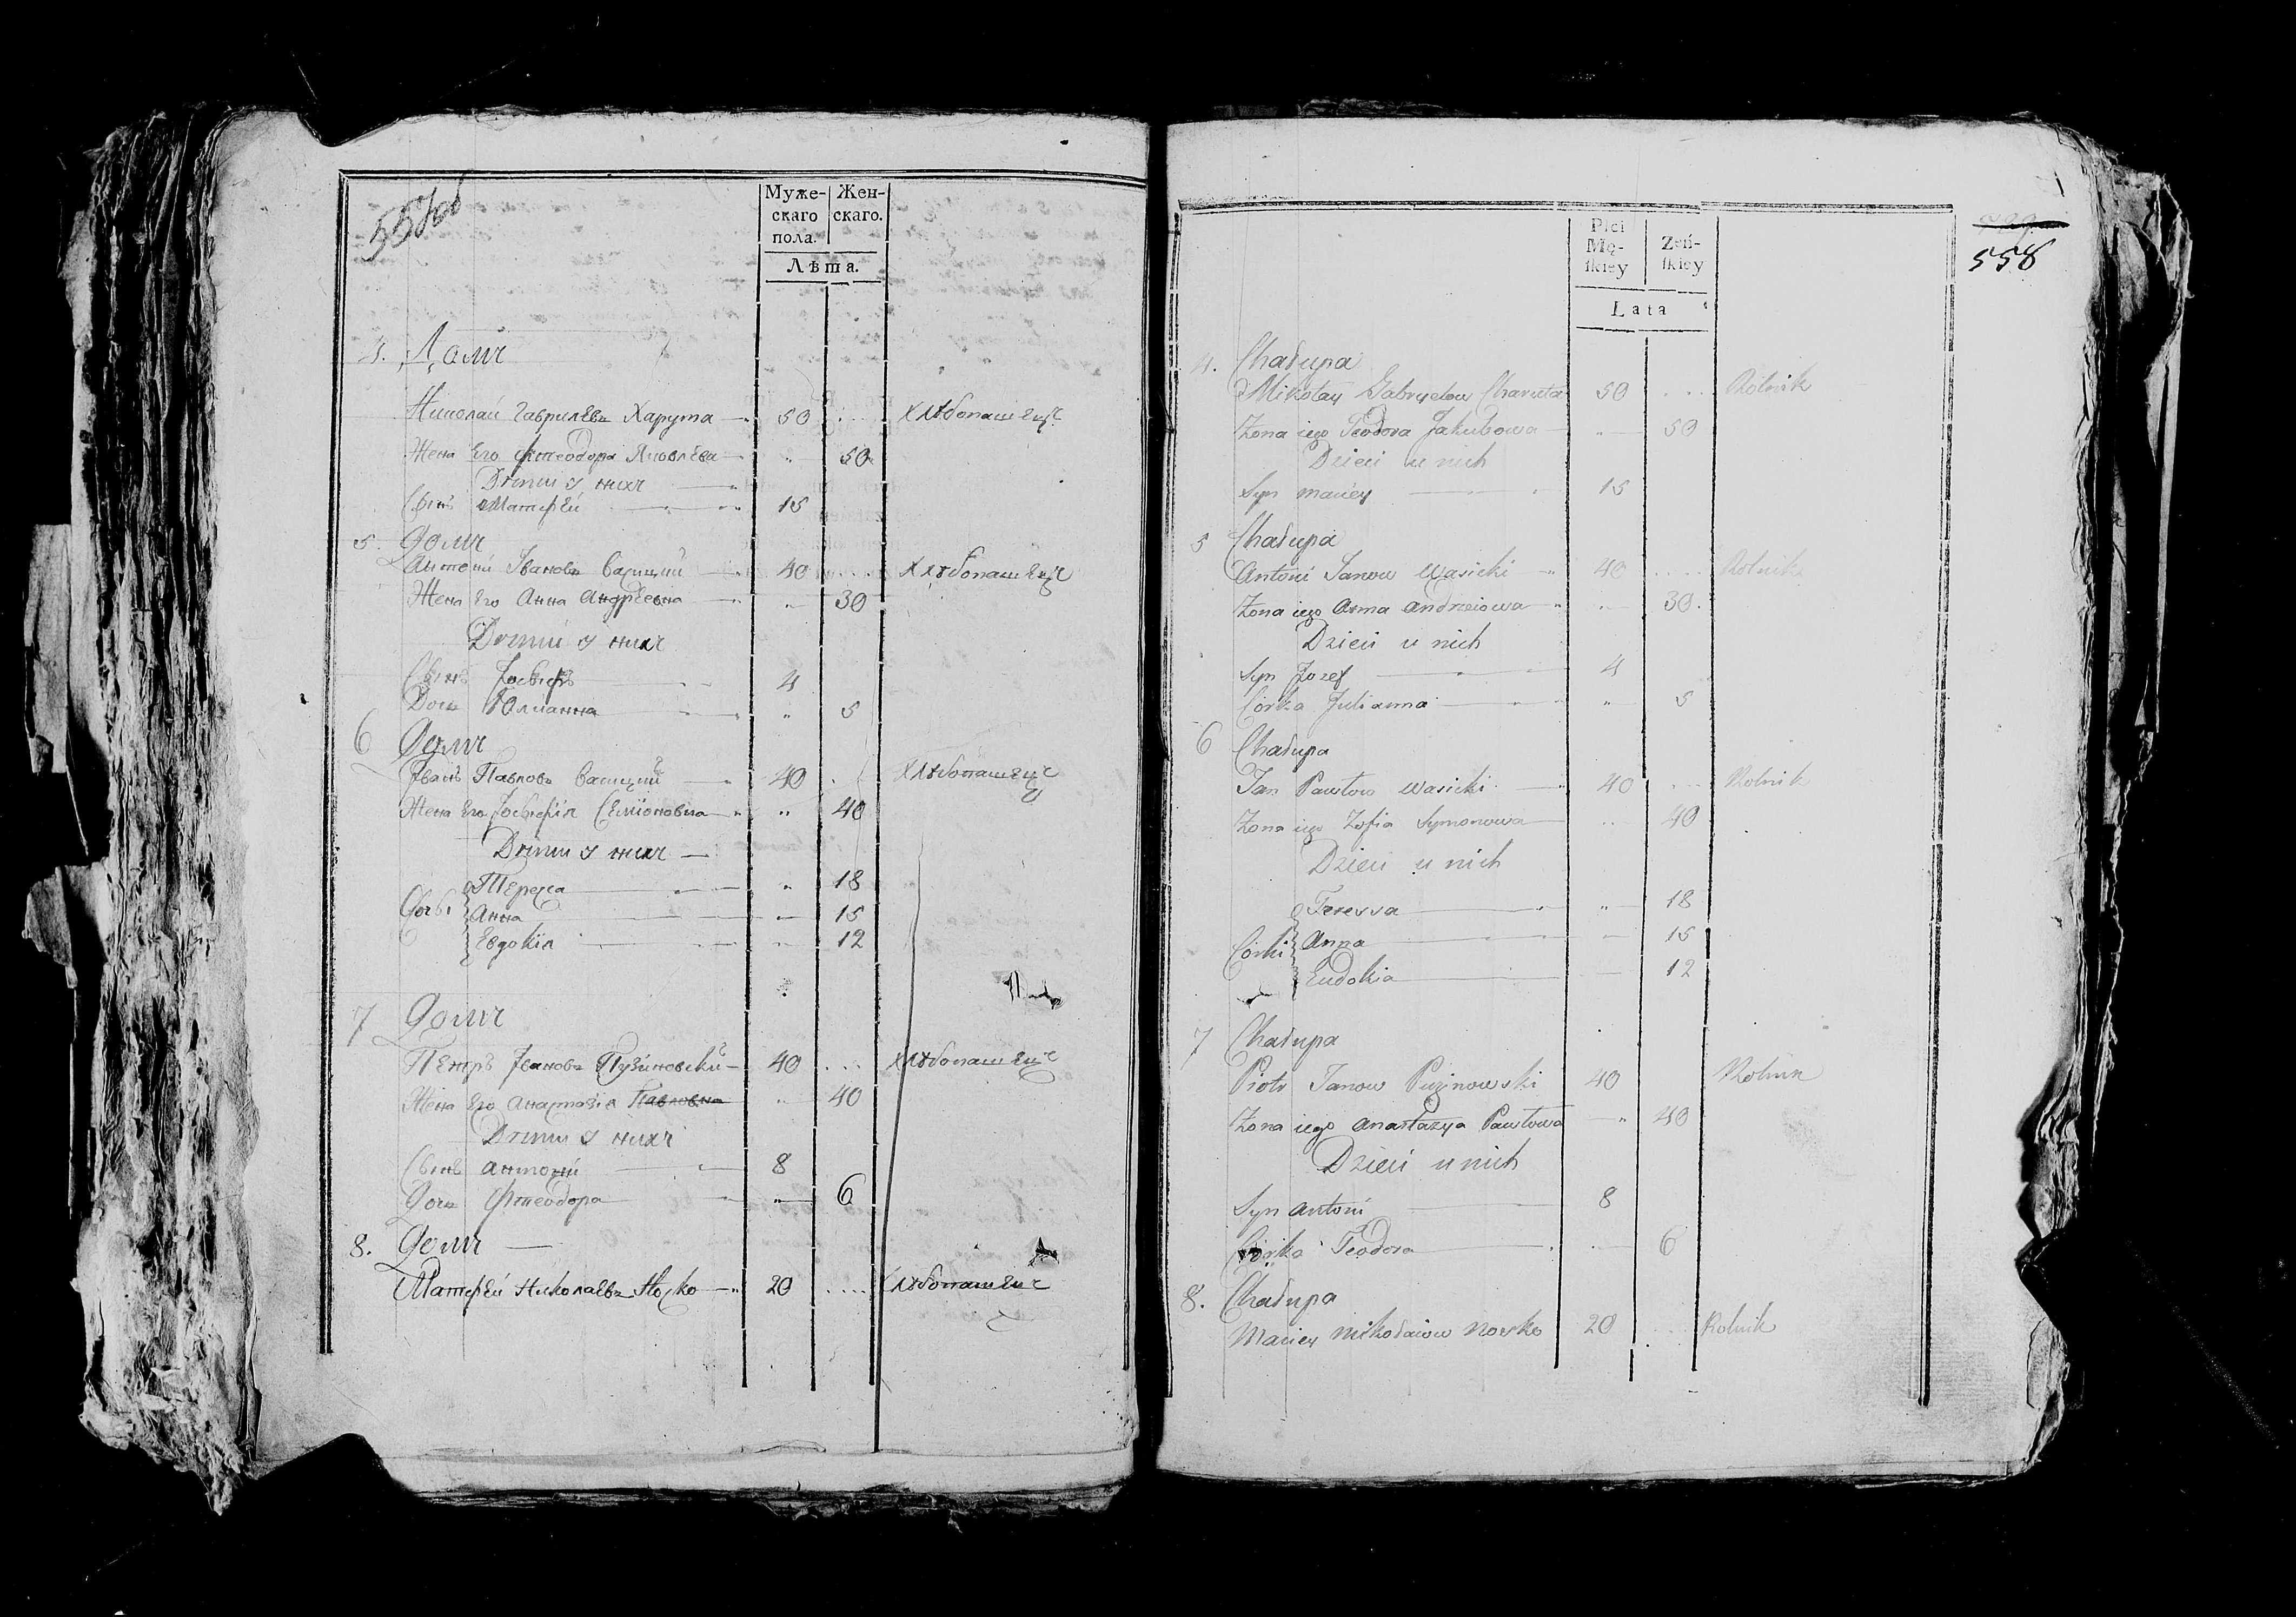 557об
Муже-
скаго
пола.
Жен-
скаго.
Лѣта.
4. Домъ
Николай Гаврилевъ Харута 50 .... Хлѣбопашецъ
Жена Его Фтеодора Яковлева " 50
Дѣти у нихъ
Сынъ Матфей 15
5. Домъ
Антоній Івановъ Васицкий 40 .... Хлѣбопашецъ
Жена Его Анна Андрѣевна " 30
Дѣти у нихъ
Сынъ Іосифъ 4
Дочь Юлианна " 5
6 Домъ
Іванъ Павловъ Васицкий 40 Хлѣбопашецъ
Жена Его Семіоновна " 40
Дѣти у нихъ
Тереса " 18
Дочьи Анна " 15
Евдокія " 12
7 Домъ
Петръ Івановъ Пузиновский 40 ... Хлѣбопашецъ
Жена Его Анастазія Павловна " 40
Дѣти у нихъ
Сынъ Антоній 8
Дочь Фтеодора " 6
8. Домъ
Матфей Николаевъ Носко 20 .... Хлѣбопашецъ
558
Płci
Mę-
ſkiey
Żeń-
ſkiey
Lata
4. Chałupa
Mikołay Gabryelow Charuta 50 ... Rolnik
Zona iego Teodora Jakubowa " 50
Dzieci u nich
Syn Maciey 15
5 Chałupa
Antoni Janow Wasicki 40 .... Rolnik
Zona iego Anna Andrzeiowa " 30.
Dzieci u nich
Syn Jozef 4
Corka Julianna " 5
6 Chałupa
Jan Pawłow Wasicki 40 ... Rolnik
Zona iego Zofia Symonowa " 40
Dzieci u nich
Teressa " 18
Corki Anna " 15
Eudokia 12
7 Chałupa
Piotr Janow Puzinowski 40 Rolnik
Zona iego Anastazya Pawłowa " 40
Dzieci u nich
Syn Antoni 8
Corka Teodora 6
8. Chałupa
Maciey Mikołaiow Nosko 20 .... Rolnik